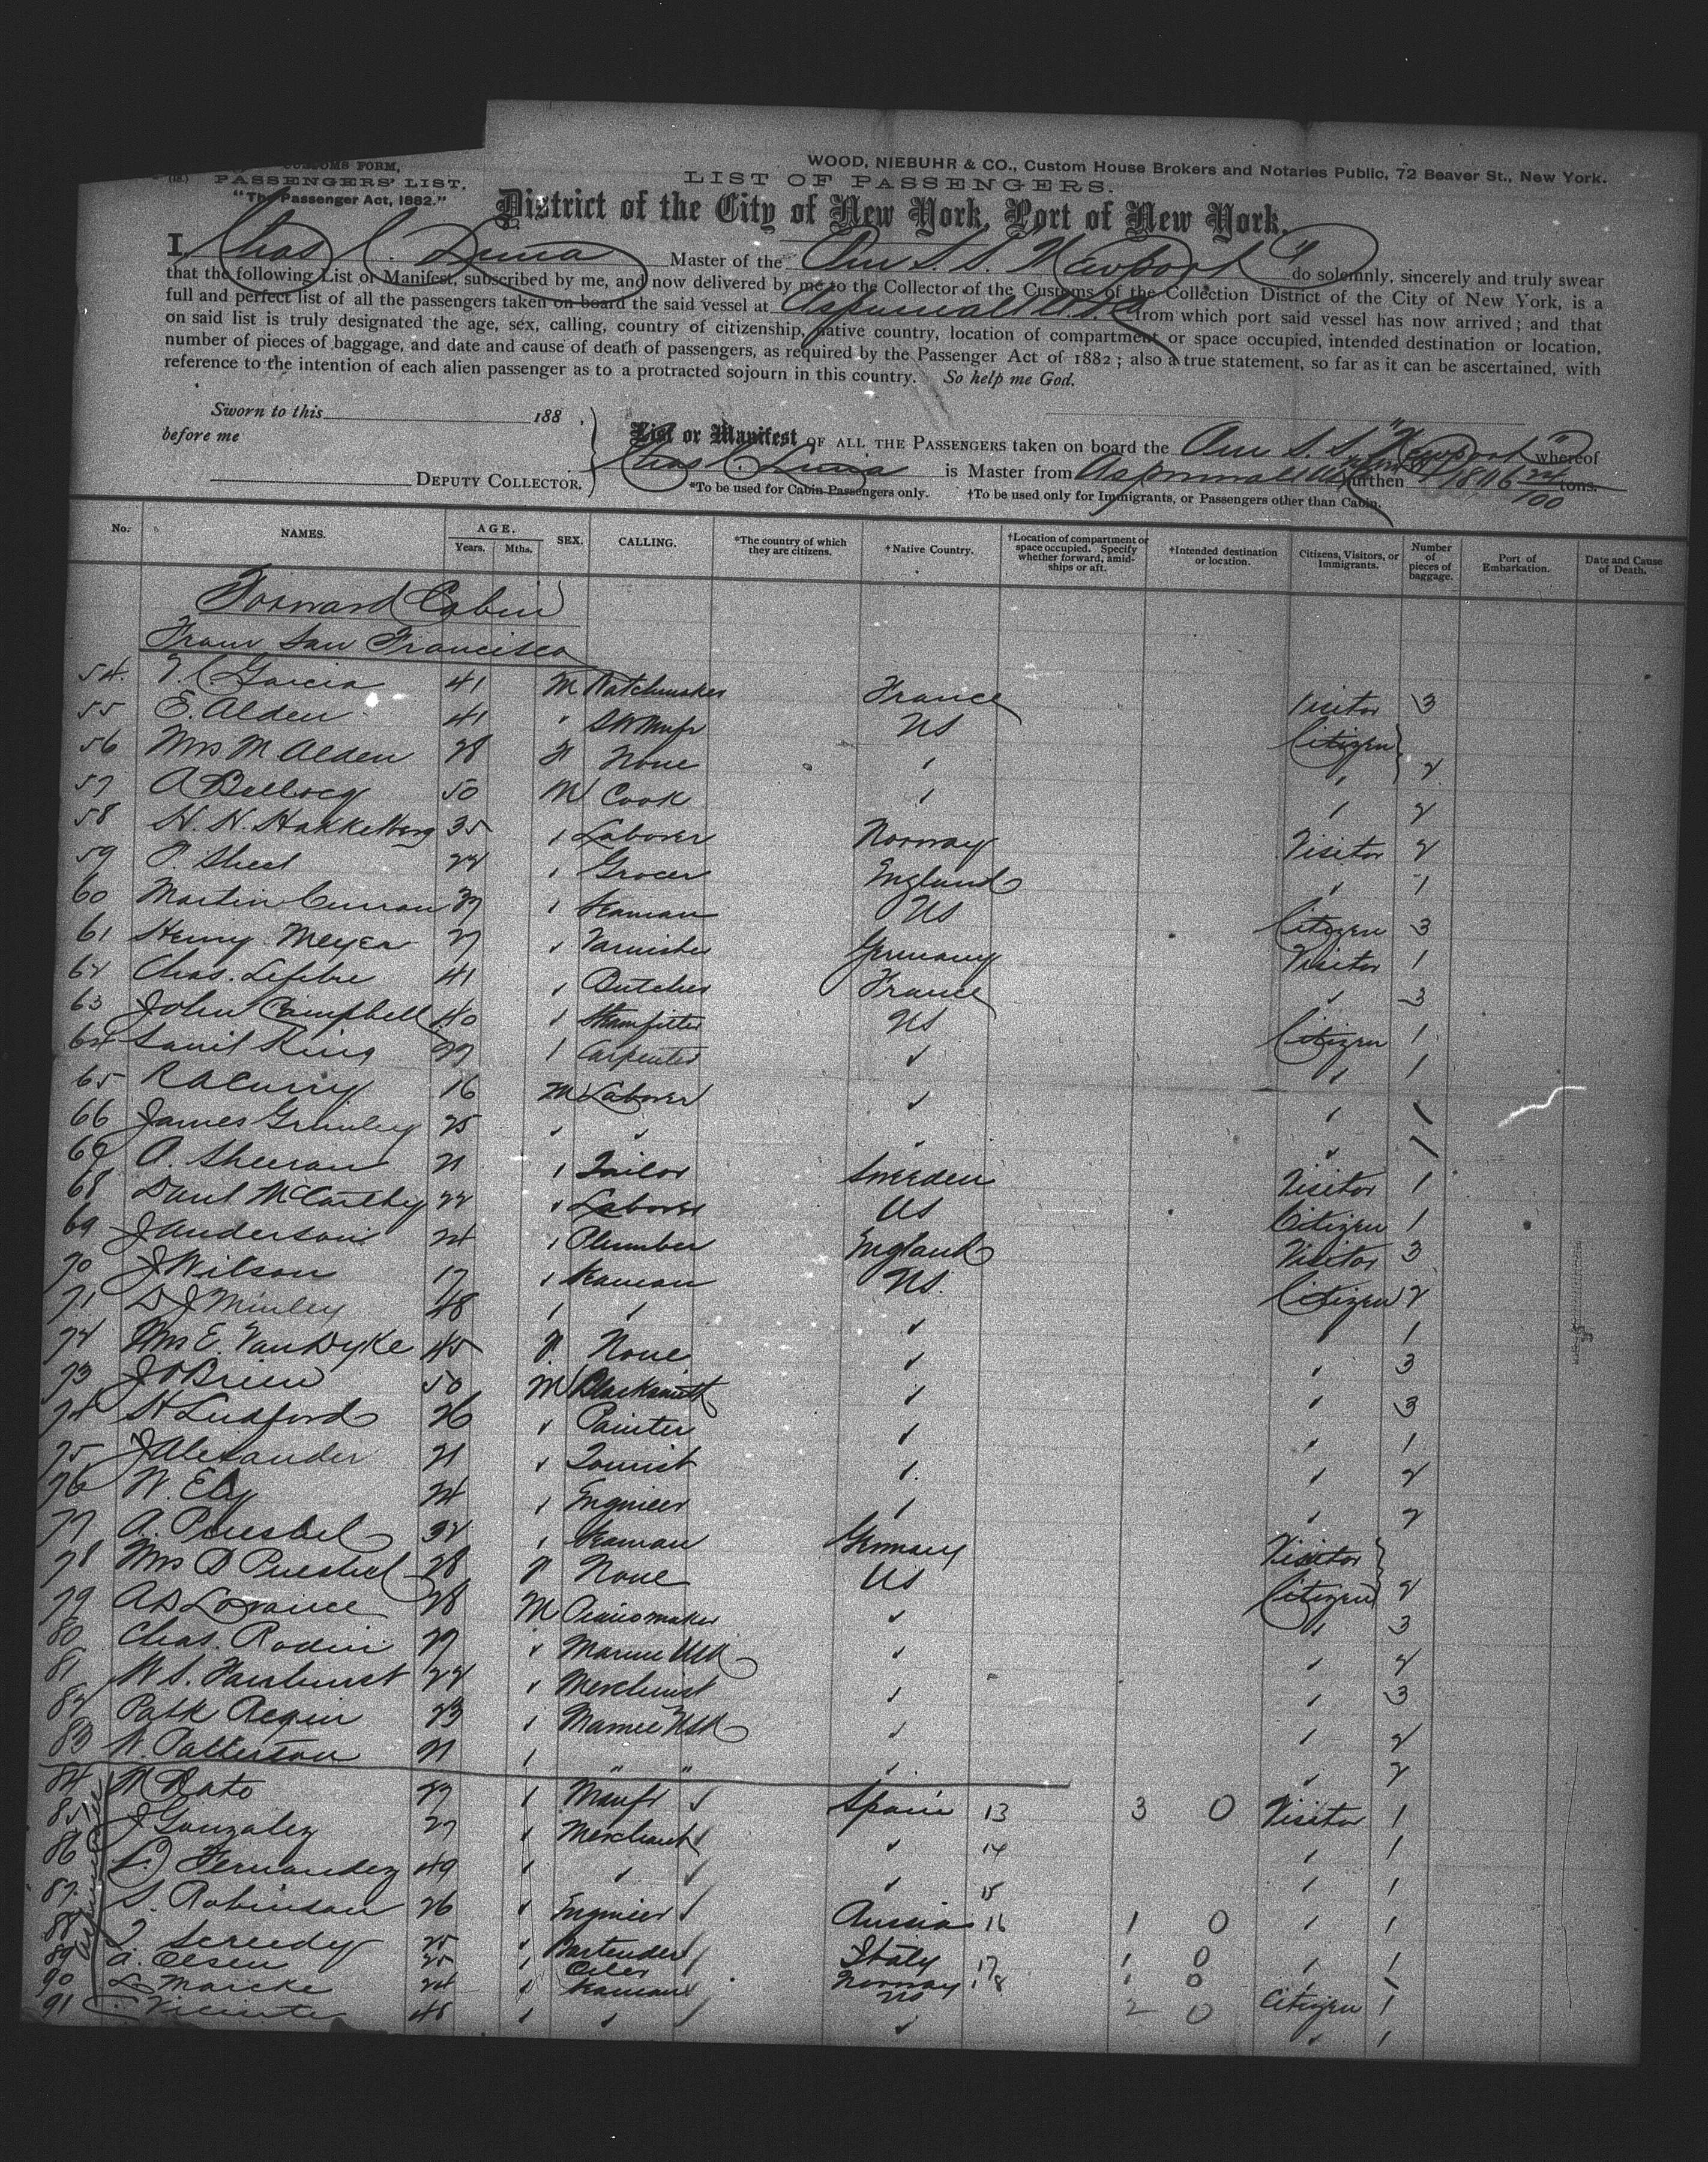 CUSTOMS FORM,
PASSENGERS' LIST.
"The Passenger Act, 1882."
WOOD, NIEBUHR & CO., Custom House Brokers and Notaries Public, 72 Beaver St., New York.
LIST OF PASSENGERS.
District of the City of New York, Port of New York.
I, Chas C. Lima Master of the Am S.S. "Newport" do solemnly, sincerely and truly swear
that the following List or Manifest, subscribed by me, and now delivered by me to the Collector of the Customs of the Collection District of the City of New York, is a
full and perfect list of all the passengers taken on board the said vessel at Aspinwall U.S.C. from which port said vessel has now arrived; and that
on said list is truly designated the age, sex, calling, country of citizenship, native country, location of compartment or space occupied, intended destination or location,
number of pieces of baggage, and date and cause of death of passengers, as required by the Passenger Act of 1882; also a true statement, so far as it can be ascertained, with
reference to the intention of each alien passenger as to a protracted sojourn in this country. So help me God.
Sworn to this 188 .
before me
DEPUTY COLLECTOR.
List or Manifest OF ALL THE PASSENGERS taken on board the Am S.S. "Newport" whereof
Chas C. Lima is Master from Aspinwall burthen tons.
*To be used for Cabin Passengers only. †To be used only for Immigrants, or Passengers other than Cabin.
No. NAMES. AGE. Years. Mths. SEX. CALLING. *The country of which they are citizens. †Native Country. †Location of compartment or space occupied. Specify whether forward, amidships or aft. †Intended destination or location. Citizens, Visitors, or Immigrants. Number of pieces of baggage. Port of Embarkation. Date and Cause of Death.
Forward Cabin
From San Francisco
54. Garcia 41 M Watchmaker France Visitor 3
55 E. Alden 41 " US Citizen
56 Mrs M Alden 28 F None " " 2
57 A 50 M Cook " " 2
58 H. H. 35 " Laborer Norway Visitor 2
59 P Sheel 22 " Grocer England " 1
60 Martin Curran 39 " Seaman US Citizen 3
61 Henry Meyer 27 " Varnisher Germany Visitor 1
62 Chas. Lefebre 41 " Butcher France " 3
63 John Campbell 40 " Steamfitter US Citizen 1
64 Saml King 29 " Carpenter " " 1
65 R A Curry 16 M Laborer " " 1
66 James Grimley 25 " " " " 1
67 A. Sheeran 21 " Tailor Sweeden Visitor 1
68 Danl McCarthy 22 " Laborer US Citizen 1
69 J Anderson 24 " Plumber England Visitor 3
70 J Wilson 17 " Seaman US. Citizen 2
71 D J Minley 48 " " " " 1
72 Mrs E. Van Dyke 45 F None " " 3
73 J O'Brien 50 M Blacksmith " " 3
74 H Ludford 26 " Painter " " 1
75 J Alexander 21 " Tourist " " 2
76 W. Ely 24 " Engineer " " 2
77 A. Pueschel 32 " Seaman Germany Visitor
78 Mrs D Pueschel 28 F None US Citizen 2
79 A D Lorance 28 M Pianomaker " " 3
80 Chas. Rodin 27 " Marine USN " " 2
81 W S. Fairhurst 22 " Merchant " " 3
82 Patk Regin 23 " Marine USN " " 2
83 W. Patterson 21 " " " " " 2
84 M Rato 27 " Manft Spain 13 3 0 Visitor 1
85 J Gonzalez 27 " Merchant " 14 " 1
86 Fernandez 49 " " " 15 " 1
87 S. Robinson 26 " Engineer Russia 16 1 0 " 1
88 25 " Bartender Italy 17 1 0 " 1
89 A. Olsen 25 " Oiler Norway 18 1 0 " 1
90 Marcke 24 " Seaman US 2 0 Citizen 1
91 48 " " " " 1